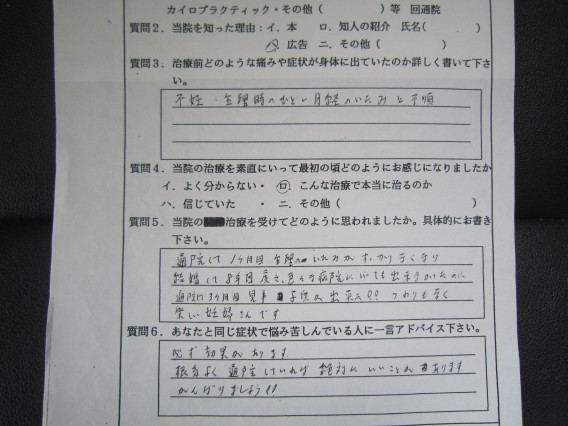 カイロプラクティック・その他（　　　　　）等　回通院
質問２．当院を知った理由：イ．本　ロ．知人の紹介　氏名（　　　　）
ハ．広告　ニ．その他（　　　　　　）
質問３．治療前どのような痛みや症状が身体に出ていたのか詳しく書いて下さ
い。
不妊・生理時のひどい月経のいたみと不順
質問４．当院の治療を素直にいって最初の頃どのようにお感じになりましたか
イ．よく分からない・　ロ．こんな治療で本当に治るのか
ハ．信じていた　・　ニ．その他（　　　　　　　　）
質問５．当院の治療を受けてどのように思われましたか。具体的にお書き
下さい。
通院して1ヶ月目 生理のいたみがすっかりなくなり
結婚して8年目 色々な病院にいても出来なかったのに
通院3ヶ月目 見事 子供が出来!! つわりもなく
楽しい妊婦さんです
質問６．あなたと同じ症状で悩み苦しんでいる人に一言アドバイス下さい。
必ず効果があります
根気よく 通院していれば 絶対に いいことがあります
がんばりましょう!!